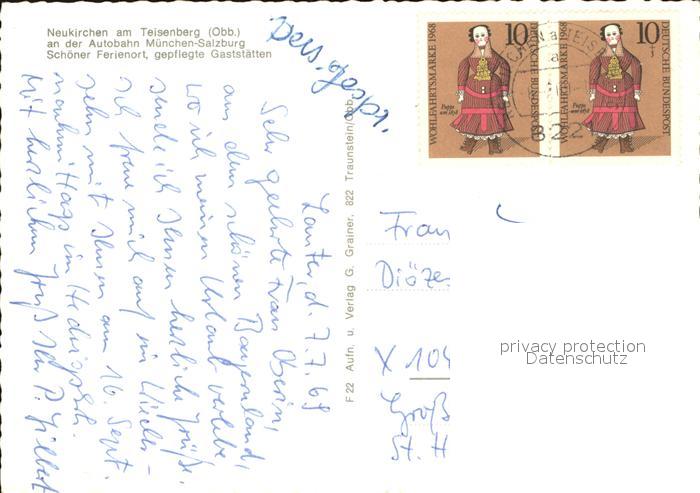 Neukirchen am Teisenberg (Obb.)
an der Autobahn München-Salzburg
Schöner Ferienort, gepflegte Gaststätten
Pers. gespr.
Lauter, d. 7.7.69
Sehr geehrte Frau Oberin,
aus dem schönen Bayernland,
wo ich meinen Urlaub verlebe
sende ich Ihnen herzliche Grüße.
Ich freue mich auf ein Wieder-
sehn mit Ihnen am 16. Sept.
im
Mit herzlichem Gruß Ihr P. Gilbert
F 22 Aufn. u. Verlag G. Grainer, 822 Traunstein/Obb.
WOHLFAHRTSMARKE 1968
10
DEUTSCHE BUNDESPOST
Puppe um 1878
WOHLFAHRTSMARKE 1968
10
DEUTSCHE BUNDESPOST
Puppe um 1878
822
Frau
Diöze
X 104
Groß
St. H
privacy protection
Datenschutz